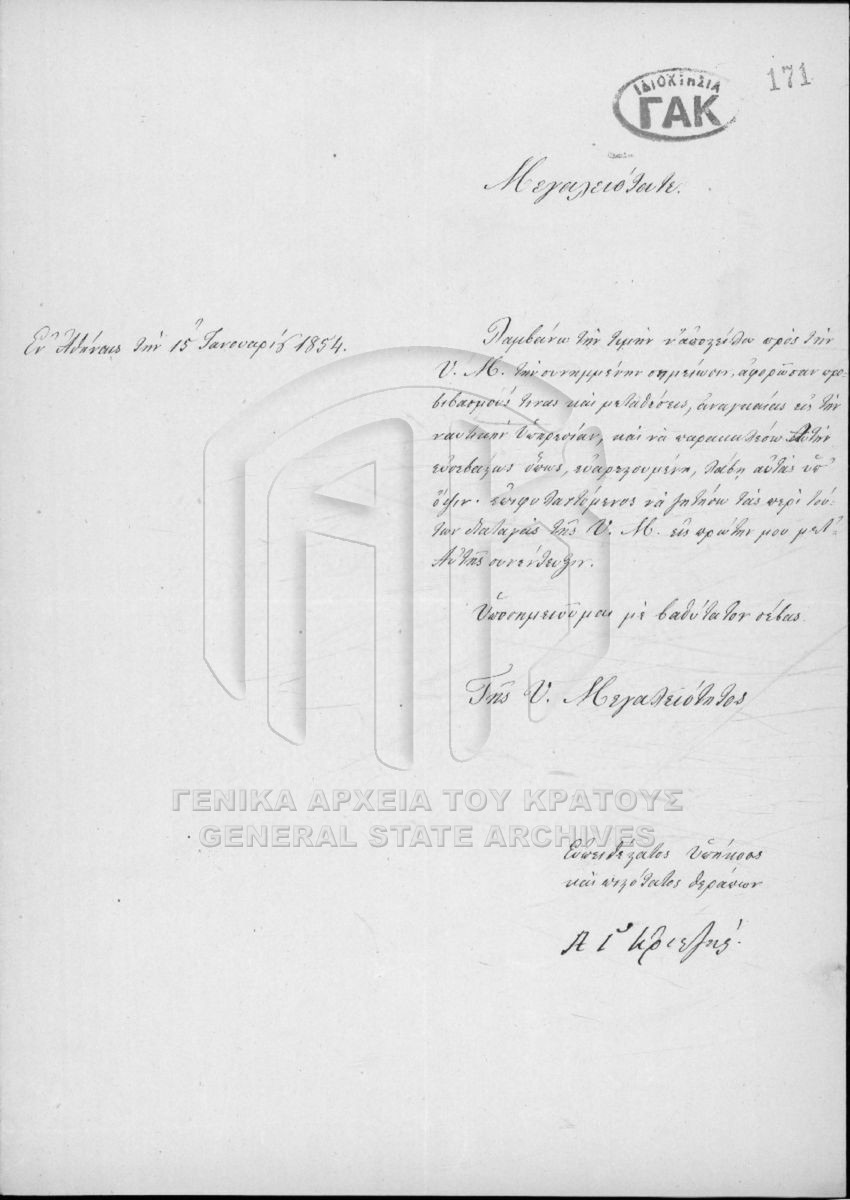 ΙΔΙΟΚΤΗΣΙΑ
ΓΑΚ
171
Μεγαλειότατε.
Ἐν Ἀθήναις τὴν 15 Ἰανουαρίου 1854.
Λαμβάνω τὴν τιμὴν ν' ἀποστείλω πρὸς τὴν
Υ. Μ. τὴν συνημμένην σημείωσιν, ἀφορῶσαν προ-
βιβασμούς τινας καὶ μεταθέσεις, ἀναγκαίας εἰς τὴν
ναυτικὴν Ὑπηρεσίαν, καὶ νὰ παρακαλέσω Αὐτὴν
εὐσεβάστως ὅπως, εὐαρεστουμένη, λάβῃ αὐτὰς ὑπ'
ὄψιν· ἐπιφυλαττόμενος νὰ ζητήσω τὰς περὶ τού-
των διαταγὰς τῆς Υ. Μ. εἰς πρώτην μου μετ'
Αὐτῆς συνέντευξιν.
Ὑποσημειοῦμαι μὲ βαθύτατον σέβας.
Τῆς Υ. Μεγαλειότητος
ΓΕΝΙΚΑ ΑΡΧΕΙΑ ΤΟΥ ΚΡΑΤΟΥΣ
GENERAL STATE ARCHIVES
Εὐπειθέστατος ὑπήκοος
καὶ πιστότατος θεράπων
Α Γ Κριεζής.